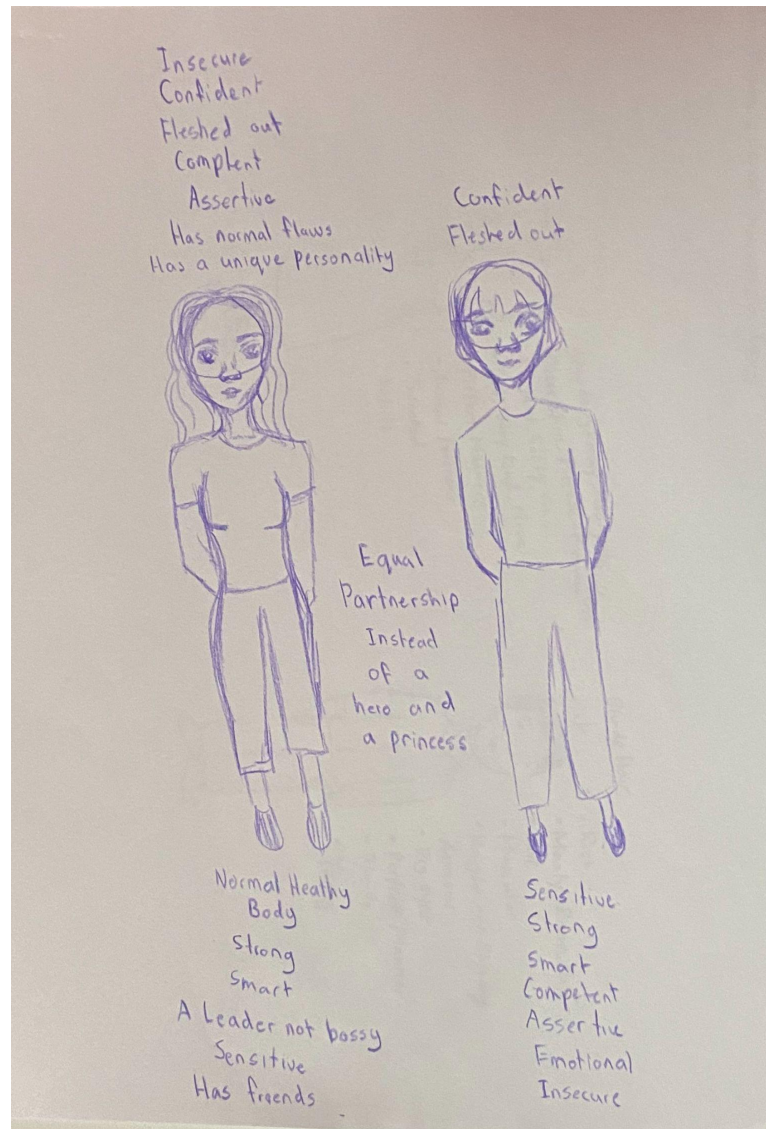 Insecure
Confident
Fleshed out
Complent
Assertive
Has normal flaws
Has a unique personality
Confident
Fleshed out
Equal
Partnership
Instead
of a
hero and
a princess
Normal Heathy
Body
Strong
Smart
A Leader not bossy
Sensitive
Has frqends
Sensitive
Strong
Smart
Competent
Assertive
Emotional
Insecure